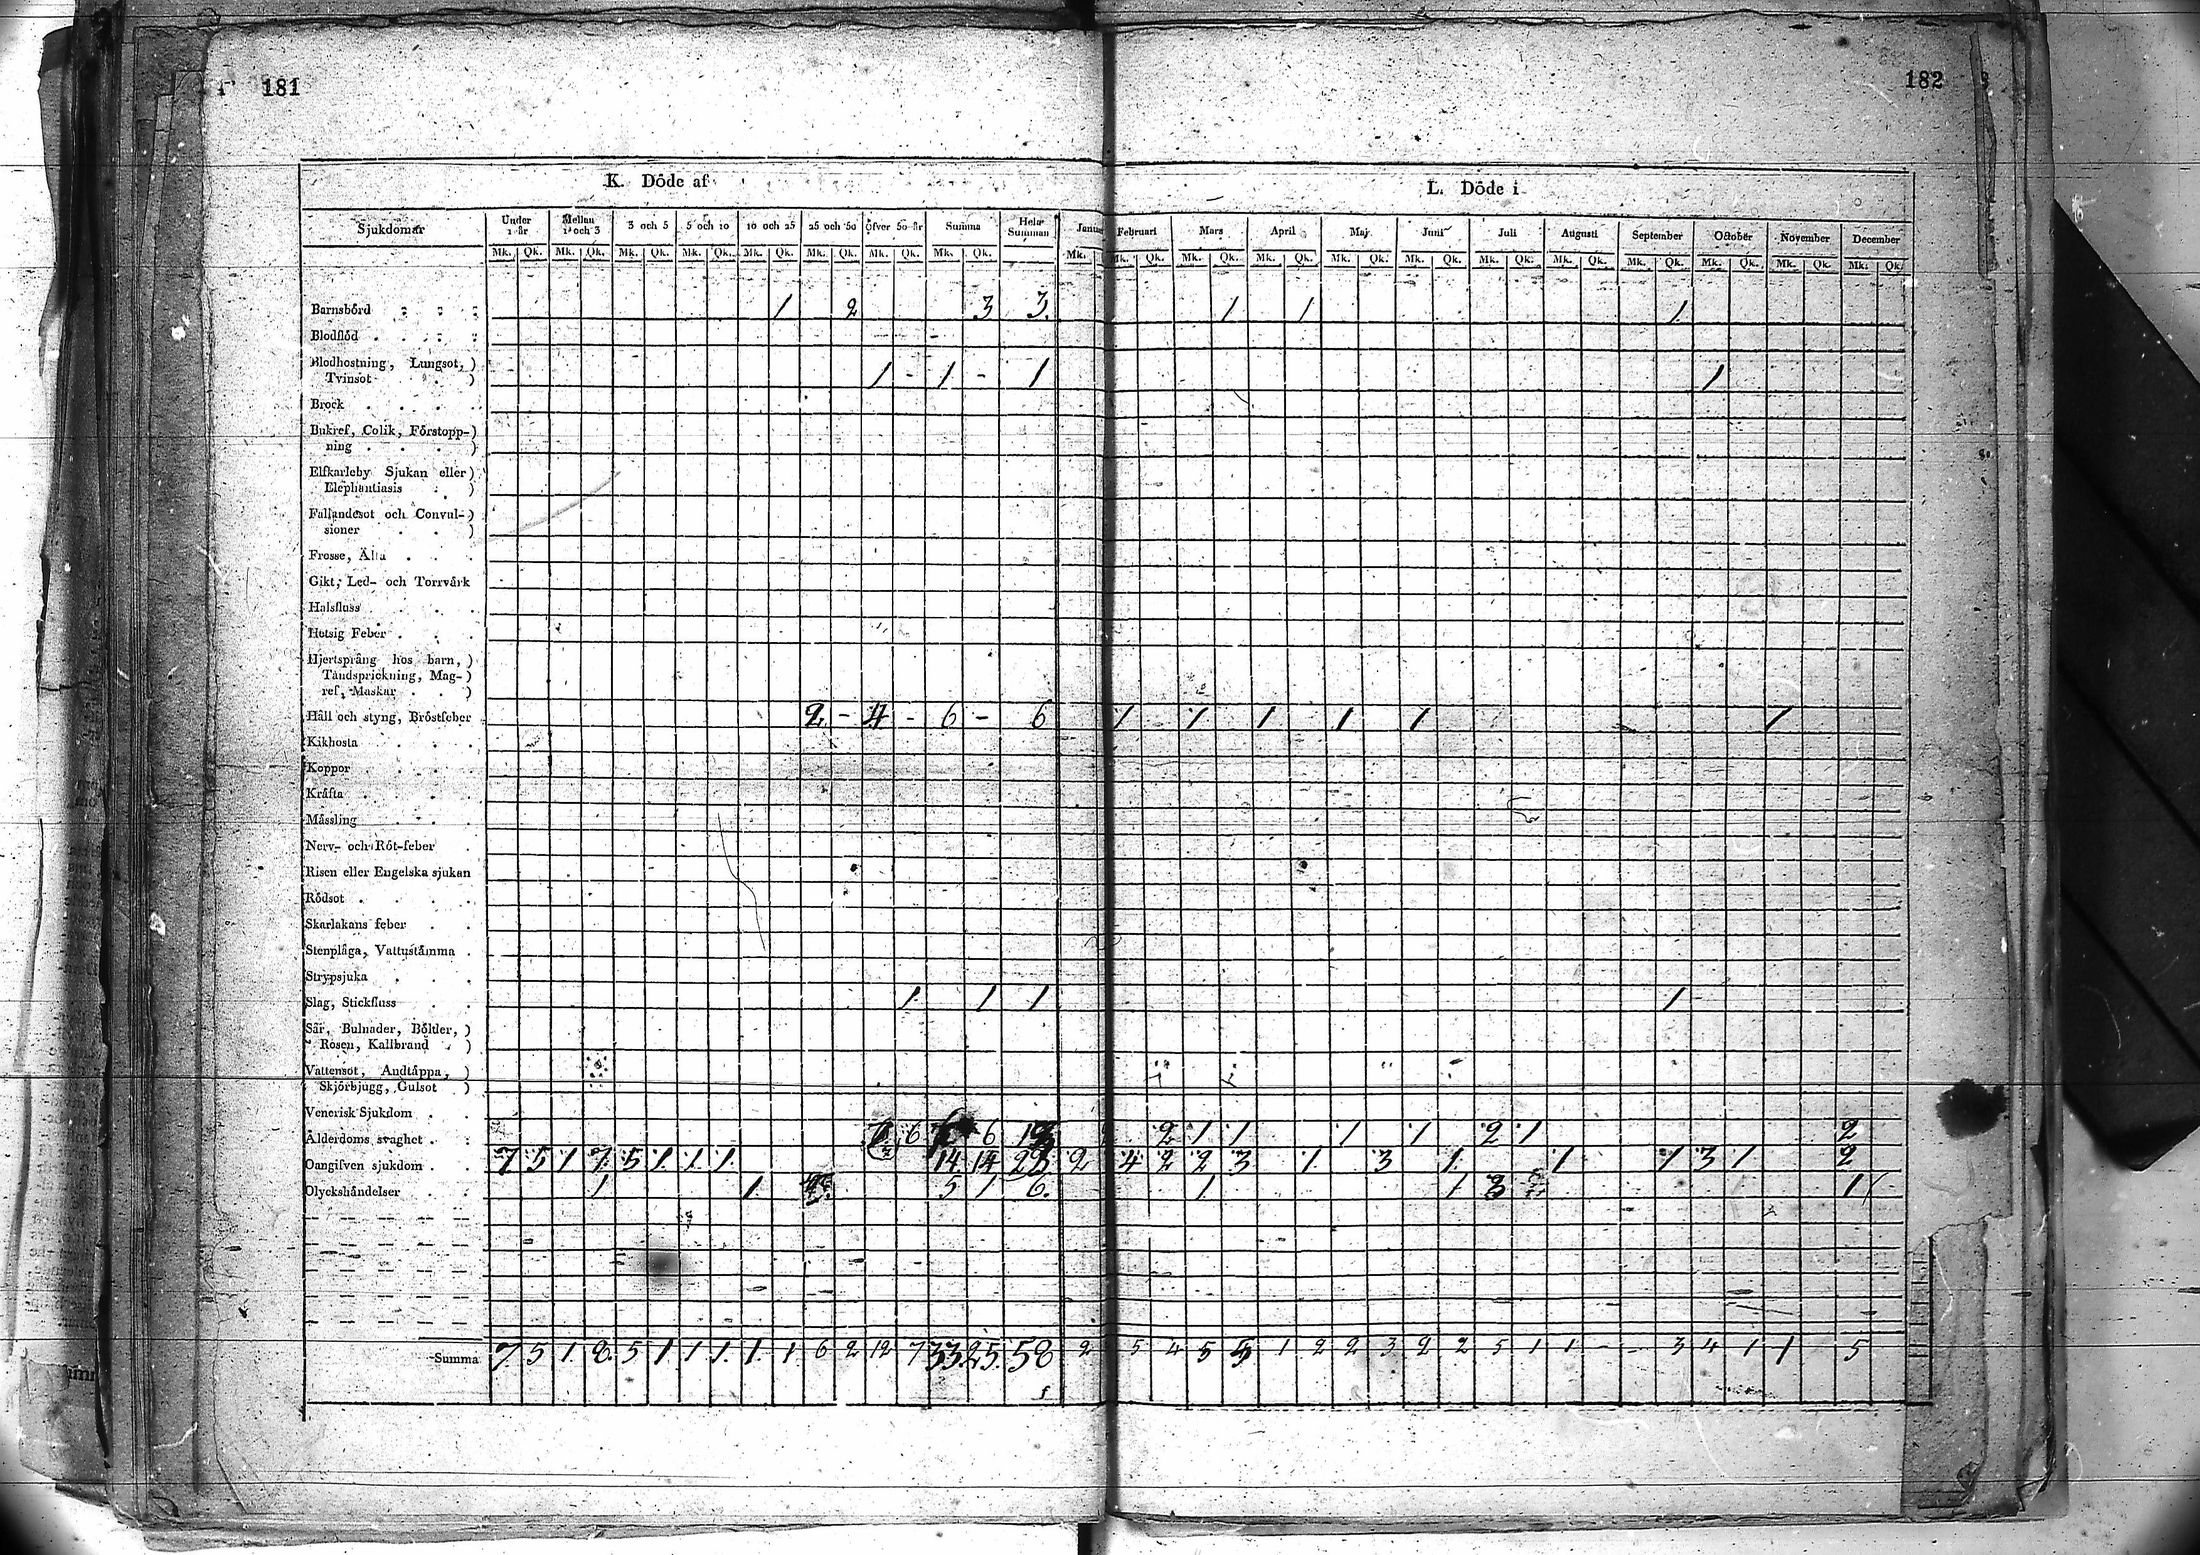 181
182
K. Döde af
L. Döde i
Sjukdomar Under 1 år Mellan 1 och 3 3 och 5 5 och 10 10 och 25 25 och 50 öfver 50 år Summa Hela Summan
Februari Mars April Maj Juni Juli Augusti September October November December
Mk. Qk. Mk. Qk. Mk. Qk. Mk. Qk. Mk. Qk. Mk. Qk. Mk. Qk. Mk. Qk. Mk.
Mk. Qk. Mk. Qk. Mk. Qk. Mk. Qk. Mk. Qk. Mk. Qk. Mk. Qk. Mk. Qk. Mk. Qk. Mk. Qk. Mk. Qk.
Barnsbörd 1 2 3 3. 1 1 1
Blodflöd
Blodhostning, Lungsot, )
Tvinsot ) 1 - 1 - 1 1
Brock
Bukref, Colik, Förstopp- )
ning )
Elfkarleby Sjukan eller )
Elephantiasis )
Fallandesot och Convul- )
sioner )
Frosse, Älta
Gikt, Led- och Torrvärk
Halsfluss
Hetsig Feber
Hjertsprång hos barn, )
Tandsprickning, Mag- )
ref, Maskar )
Håll och styng, Bröstfeber 2 - 4 - 6 - 6 1 1 1 1 1 1
Kikhosta
Koppor
Kräfta
Mässling
Nerv- och Röt-feber
Risen eller Engelska sjukan
Rödsot
Skarlakans feber
Stenplåga, Vattustämma
Strypsjuka
Slag, Stickfluss 1 1 1 1
Sår, Bulnader, Bölder, )
Rosen, Kallbrand )
Vattensot, Andtäppa, )
Skjörbjugg, Gulsot )
Venerisk Sjukdom
Ålderdoms svaghet 6 6 2 1 1 1 1 2 1 2
Oangifven sjukdom 7 5 1 7 5 1 1 1 14 14 2 4 2 2 3 1 3 1 1 1 3 1 2
Olyckshändelser 1 1 5 1 6. 1 1 1
Summa 7 5 1 8 5 1 1 1 1 1 6 2 12 7 33 25 58 2 5 4 5 5 1 2 2 3 2 2 5 1 1 - - 3 4 1 1 5